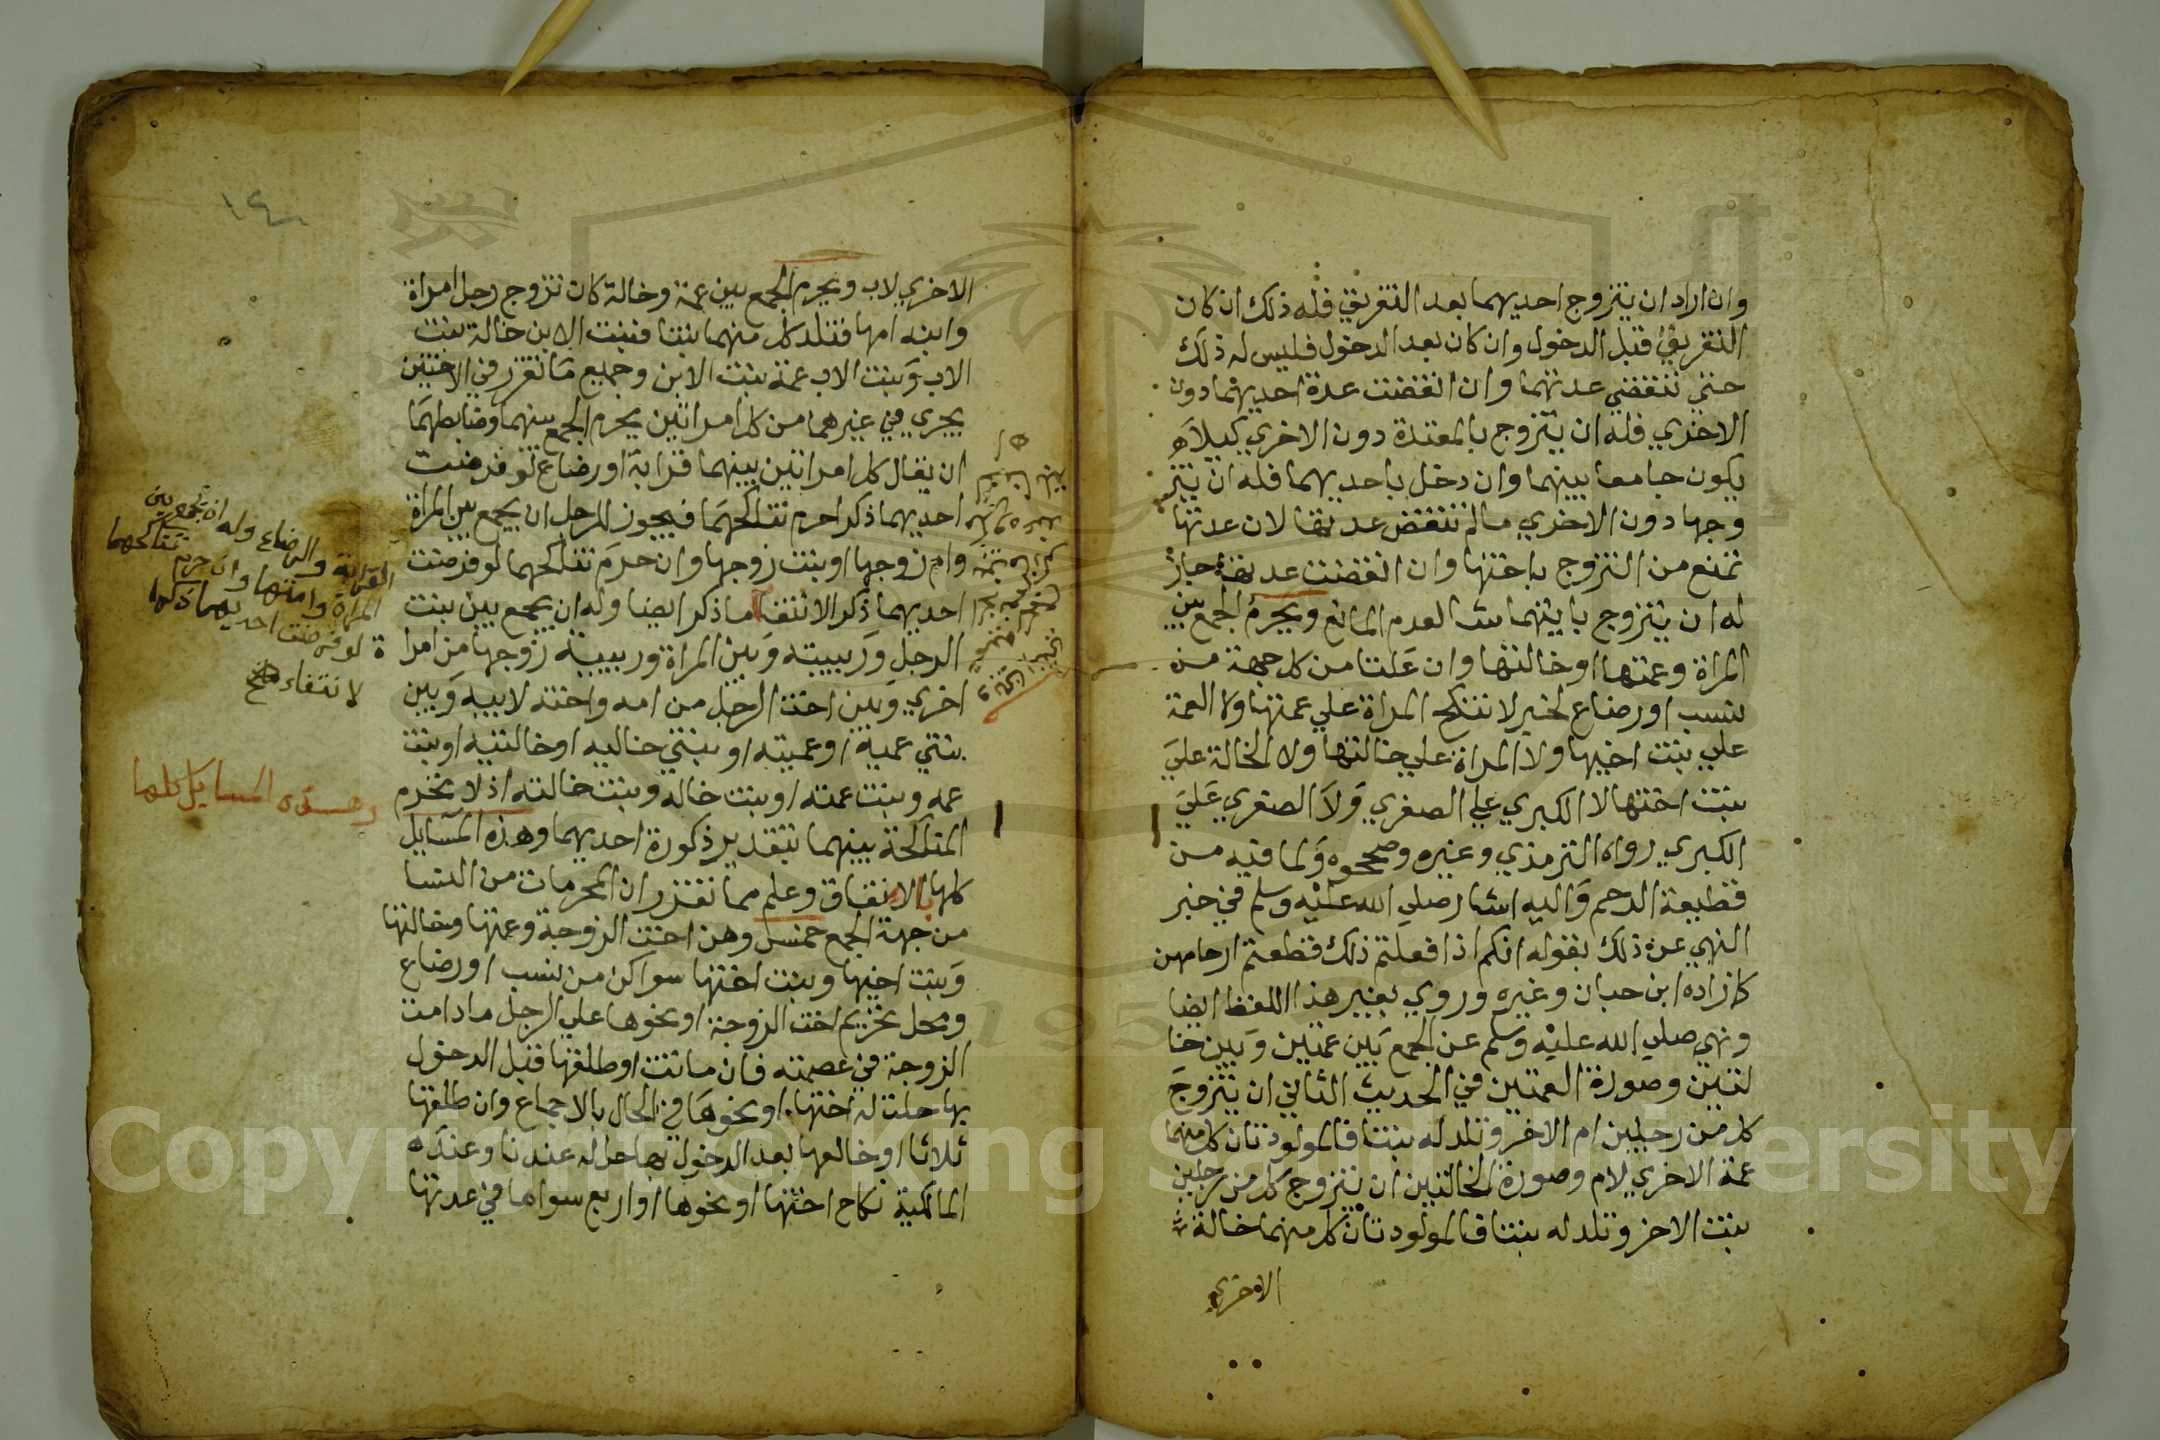 وان اراد ان يتزوج احديهما بعد التفريق فله ذلك ان كان
التفريق قبل الدخول وان كان بعد الدخول فليس له ذلك
حتي تنقضي عدتهما وان انقضت عدة احديهما دون
الاخري فله ان يتزوج بالمعتدة دون الاخري كيلا
يكون جامعا بينهما وان دخل باحديهما فله ان يتز
وجها دون الاخري مالم تنقض عدتها لان عدتها
تمنع من التزوج باختها وان انقضت عدتها جاز
له ان يتزوج بايتهما شا لعدم المانع ويحرم الجمع بين
المراة وعمتها او خالتها وان علتا من كل جهة من
نسب او رضاع لخبر لا تنكح المراة علي عمتها ولا العمة
علي بنت اخيها ولا المراة علي خالتها ولا الخالة علي
بنت اختها لا الكبري علي الصغري ولا الصغري علي
الكبري رواه الترمذي وغيره وصححوه ولما فيه من
قطيعة الرحم واليه اشار صلي الله عليه وسلم في خبر
النهي عن ذلك بقوله انكم اذا فعلتم ذلك قطعتم ارحامهن
كما زاده ابن حبان وغيره وروي بغير هذا اللفظ ايضا
ونهي صلي الله عليه وسلم عن الجمع بين عمتين وبين خا
لتين وصورة العمتين في الحديث الثاني ان يتزوج
كل من رجلين ام الاخر وتلد له بنتا فالمولودتان كل منهما
عمة الاخري لام وصورة الخالتين ان يتزوج كل من رجلين
بنت الاخر وتلد له بنتا فالمولودتان كل منهما خالة
الاخري
١٤٠
الاخري لاب ويحرم الجمع بين عمة وخالة كان تزوج رجل امراة
وابنه امها فتلد كل منهما بنتا فبنت الابن خالة بنت
الاب وبنت الاب عمة بنت الابن وجميع ما تقرر في الاختين
يجري في غيرهما من كل امراتين يحرم الجمع بينهما وضابطهما
ان يقال كل امراتين بينهما قرابة او رضاع لو فرضت
احديهما ذكرا حرم تناكحهما فيجوز للرجل ان يجمع بين المراة
وام زوجها او بنت زوجها وان حرم تناكحهما لو فرضت
احديهما ذكرا لانتفا ما ذكر ايضا وله ان يجمع بين بنت
الرجل وربيبته وبين المراة وربيبة زوجها من امرا
اخري وبين اخت الرجل من امه واخته لابيه وبين
بنتي عميه او عمتيه او بنتي خاليه او خالتيه او بنت
عمه وبنت عمته او بنت خاله وبنت خالته اذ لا تحرم
المناكحة بينهما بتقدير ذكورة احديهما وهذه المسايل
كلها بالاتفاق وعلم مما تقرر ان المحرمات من النسا
من جهة الجمع خمس وهن اخت الزوجة وعمتها وخالتها
وبنت اخيها وبنت اختها سوا كن من نسب او رضاع
ومحل تحريم اخت الزوجة او نحوها علي الرجل ما دامت
الزوجة في عصمته فان ماتت او طلقها قبل الدخول
بها حلت له اختها او نحوها في الحال بالاجماع وان طلقها
ثلاثا او خالعها بعد الدخول بها حل له عندنا وعند
المالكية نكاح اختها او نحوها او اربع سواها في عدتها
القرابة والرضاع وله ان يجمع بين
المراة وامتها وان حرم تناكحهما
لو فرضت احديهما ذكرا
لانتفاء
وهذه المسايل كلها
Copyright © King Saud University